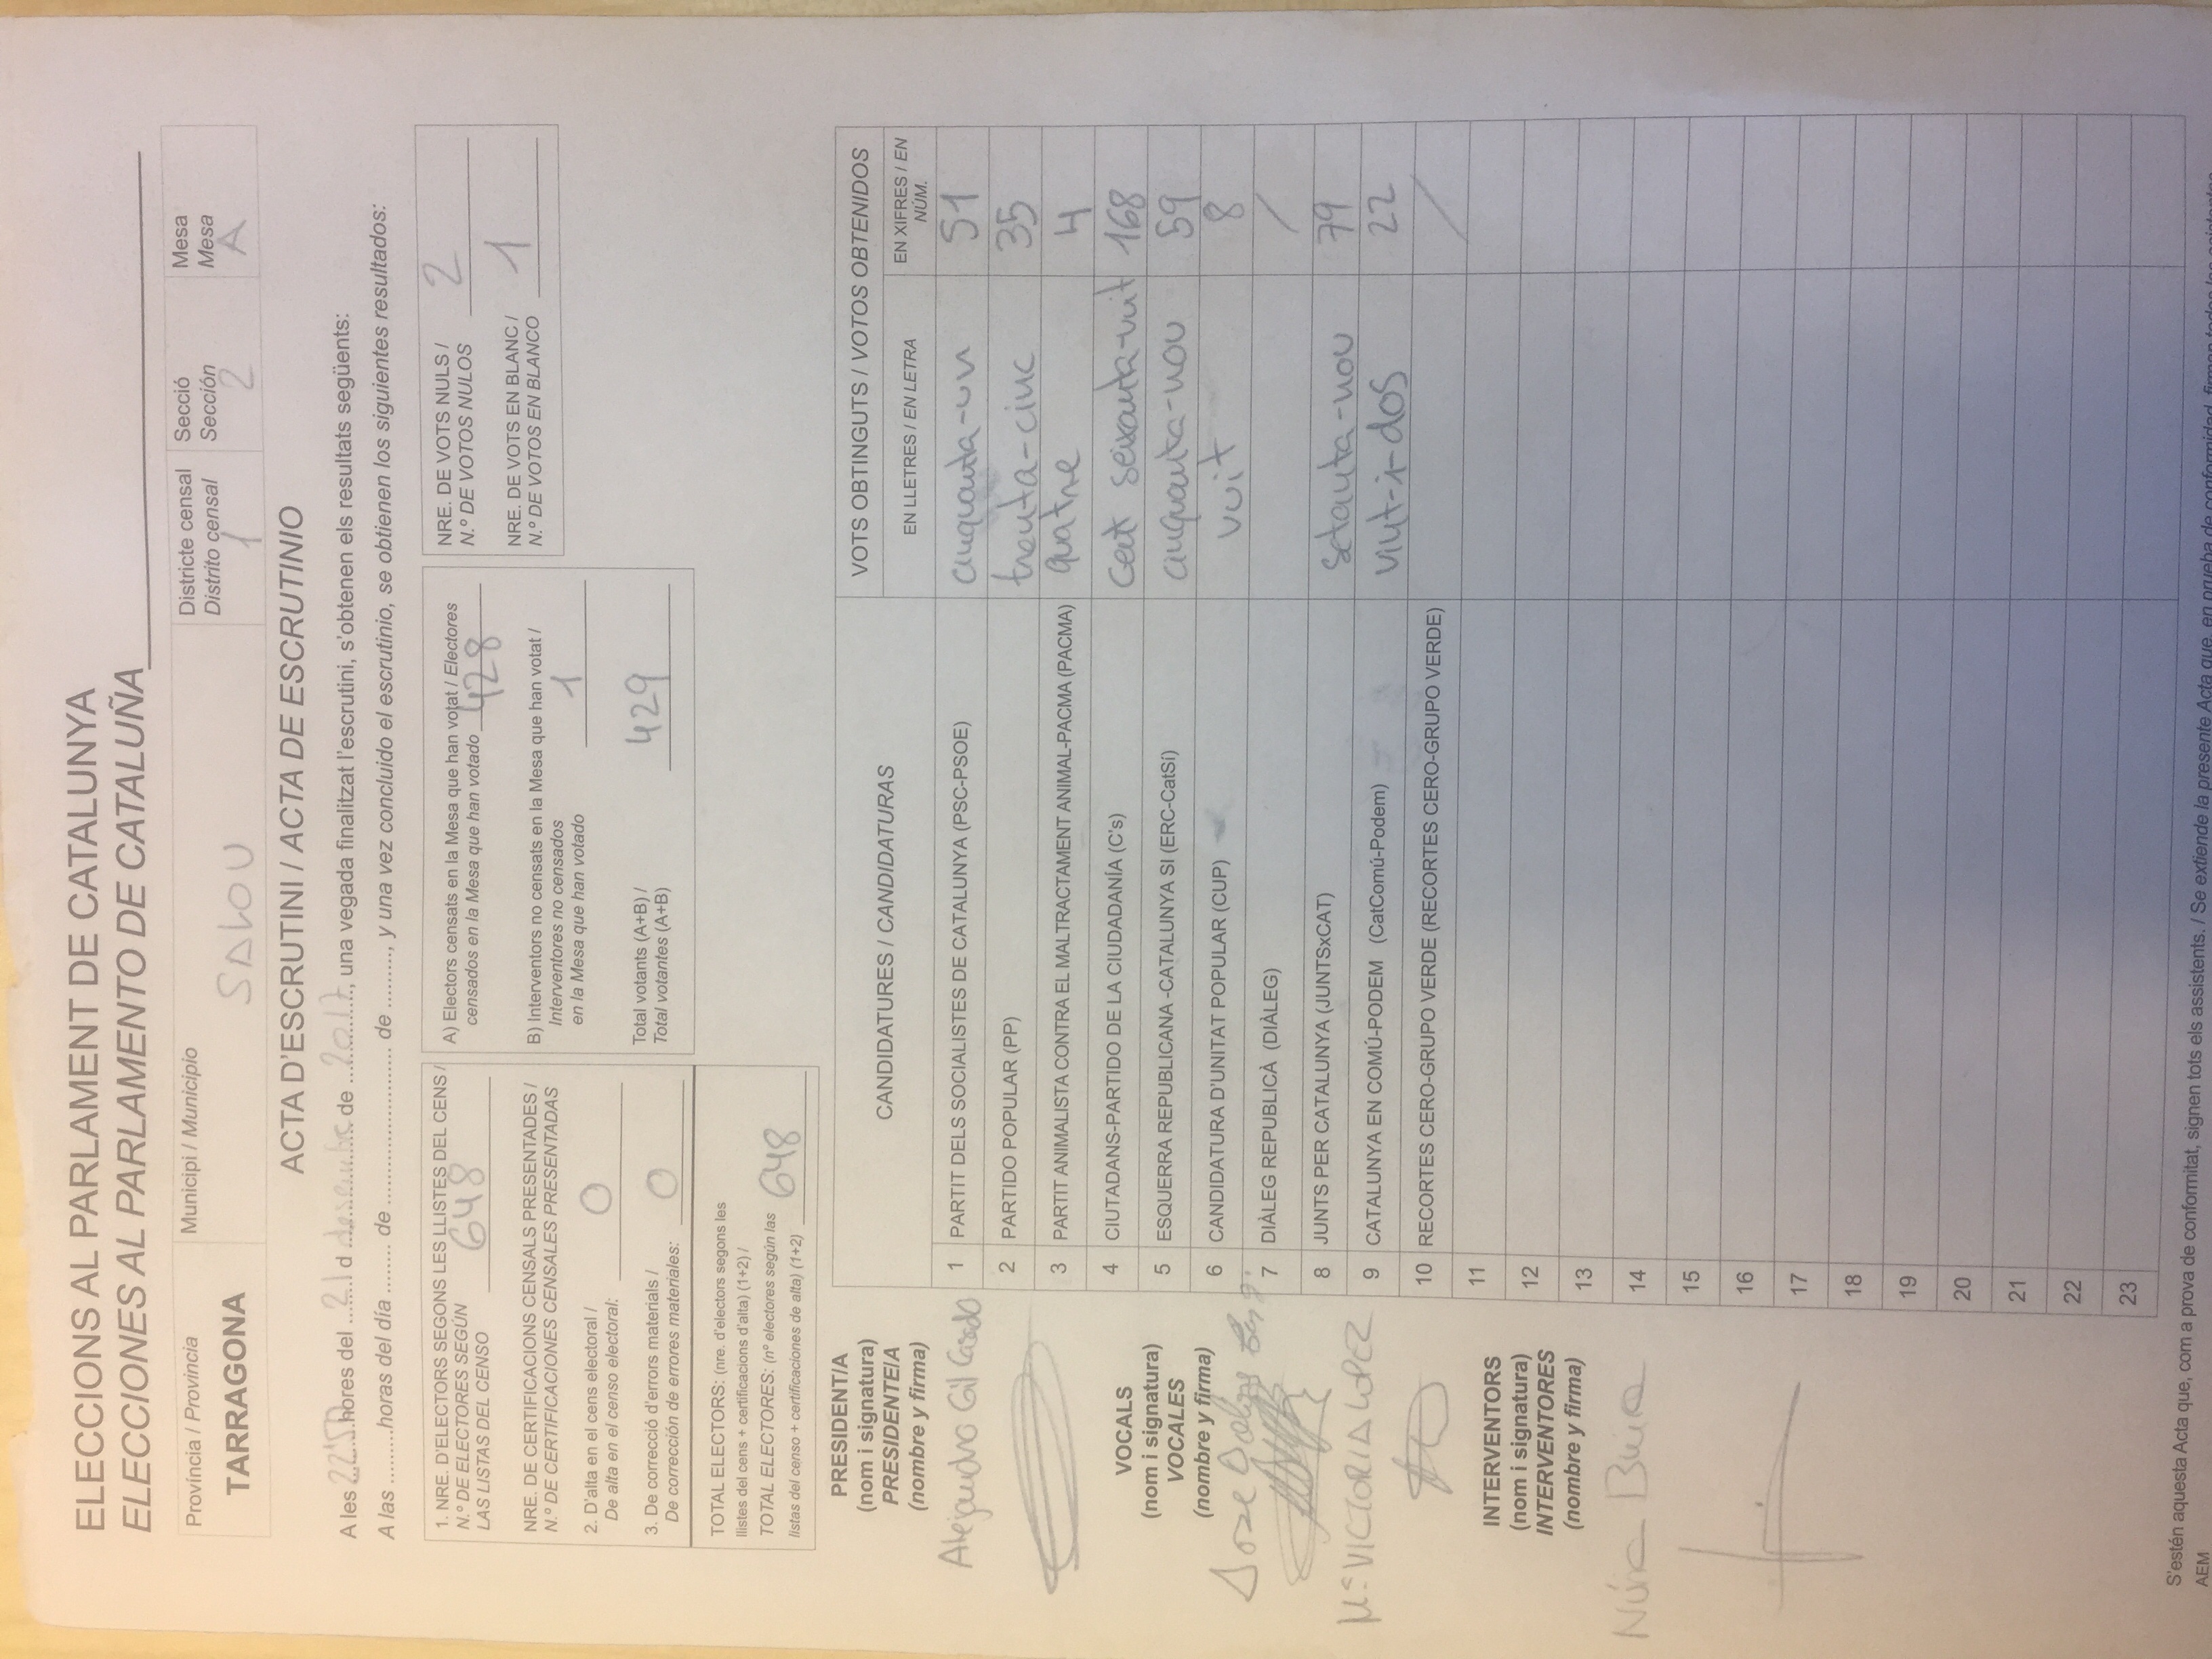 ELECCIONS AL PARLAMENT DE CATALUNYA
ELECCIONES AL PARLAMENTO DE CATALUÑA
Província / Provincia
TARRAGONA
Municipi / Municipio
SALOU
Districte censal
Distrito censal
1
Secció
Sección
2
Mesa
Mesa
A
ACTA D'ESCRUTINI / ACTA DE ESCRUTINIO
A les 22'50 hores del 21 d desembre de 2017, una vegada finalitzat l'escrutini, s'obtenen els resultats següents:
A las .........horas del día ........ de ........................... de ........., y una vez concluido el escrutinio, se obtienen los siguientes resultados:
1. NRE. D'ELECTORS SEGONS LES LLISTES DEL CENS /
N.º DE ELECTORES SEGÚN
LAS LISTAS DEL CENSO 648
NRE. DE CERTIFICACIONS CENSALS PRESENTADES /
N.º DE CERTIFICACIONES CENSALES PRESENTADAS
2. D'alta en el cens electoral /
De alta en el censo electoral: 0
3. De correcció d'errors materials /
De corrección de errores materiales: 0
TOTAL ELECTORS: (nre. d'electors segons les
llistes del cens + certificacions d'alta) (1+2) /
TOTAL ELECTORES: (nº electores según las
listas del censo + certificaciones de alta) (1+2) 648
A) Electors censats en la Mesa que han votat / Electores
censados en la Mesa que han votado 428
B) Interventors no censats en la Mesa que han votat /
Interventores no censados
en la Mesa que han votado 1
Total votants (A+B) /
Total votantes (A+B) 429
NRE. DE VOTS NULS /
N.º DE VOTOS NULOS 2
NRE. DE VOTS EN BLANC /
N.º DE VOTOS EN BLANCO 1
PRESIDENT/A
(nom i signatura)
PRESIDENTE/A
(nombre y firma)
Alejandro Gil Casado
VOCALS
(nom i signatura)
VOCALES
(nombre y firma)
Jose
Mª VICTORIA LOPEZ
INTERVENTORS
(nom i signatura)
INTERVENTORES
(nombre y firma)
Núria
CANDIDATURES / CANDIDATURAS
VOTS OBTINGUTS / VOTOS OBTENIDOS
EN LLETRES / EN LETRA
EN XIFRES / EN
NÚM.
1 PARTIT DELS SOCIALISTES DE CATALUNYA (PSC-PSOE) cinquanta-un 51
2 PARTIDO POPULAR (PP) trenta-cinc 35
3 PARTIT ANIMALISTA CONTRA EL MALTRACTAMENT ANIMAL-PACMA (PACMA) quatre 4
4 CIUTADANS-PARTIDO DE LA CIUDADANÍA (C's) cent seixanta-vuit 168
5 ESQUERRA REPUBLICANA -CATALUNYA SI (ERC-CatSí) cinquanta-nou 59
6 CANDIDATURA D'UNITAT POPULAR (CUP) vuit 8
7 DIÀLEG REPUBLICÀ (DIÀLEG) /
8 JUNTS PER CATALUNYA (JUNTSxCAT) setanta-nou 79
9 CATALUNYA EN COMÚ-PODEM (CatComú-Podem) vint-i-dos 22
10 RECORTES CERO-GRUPO VERDE (RECORTES CERO-GRUPO VERDE) /
11
12
13
14
15
16
17
18
19
20
21
22
23
S'estén aquesta Acta que, com a prova de conformitat, signen tots els assistents. / Se extiende la presente Acta que, en prueba de conformidad, firman todos los asistentes.
AEM